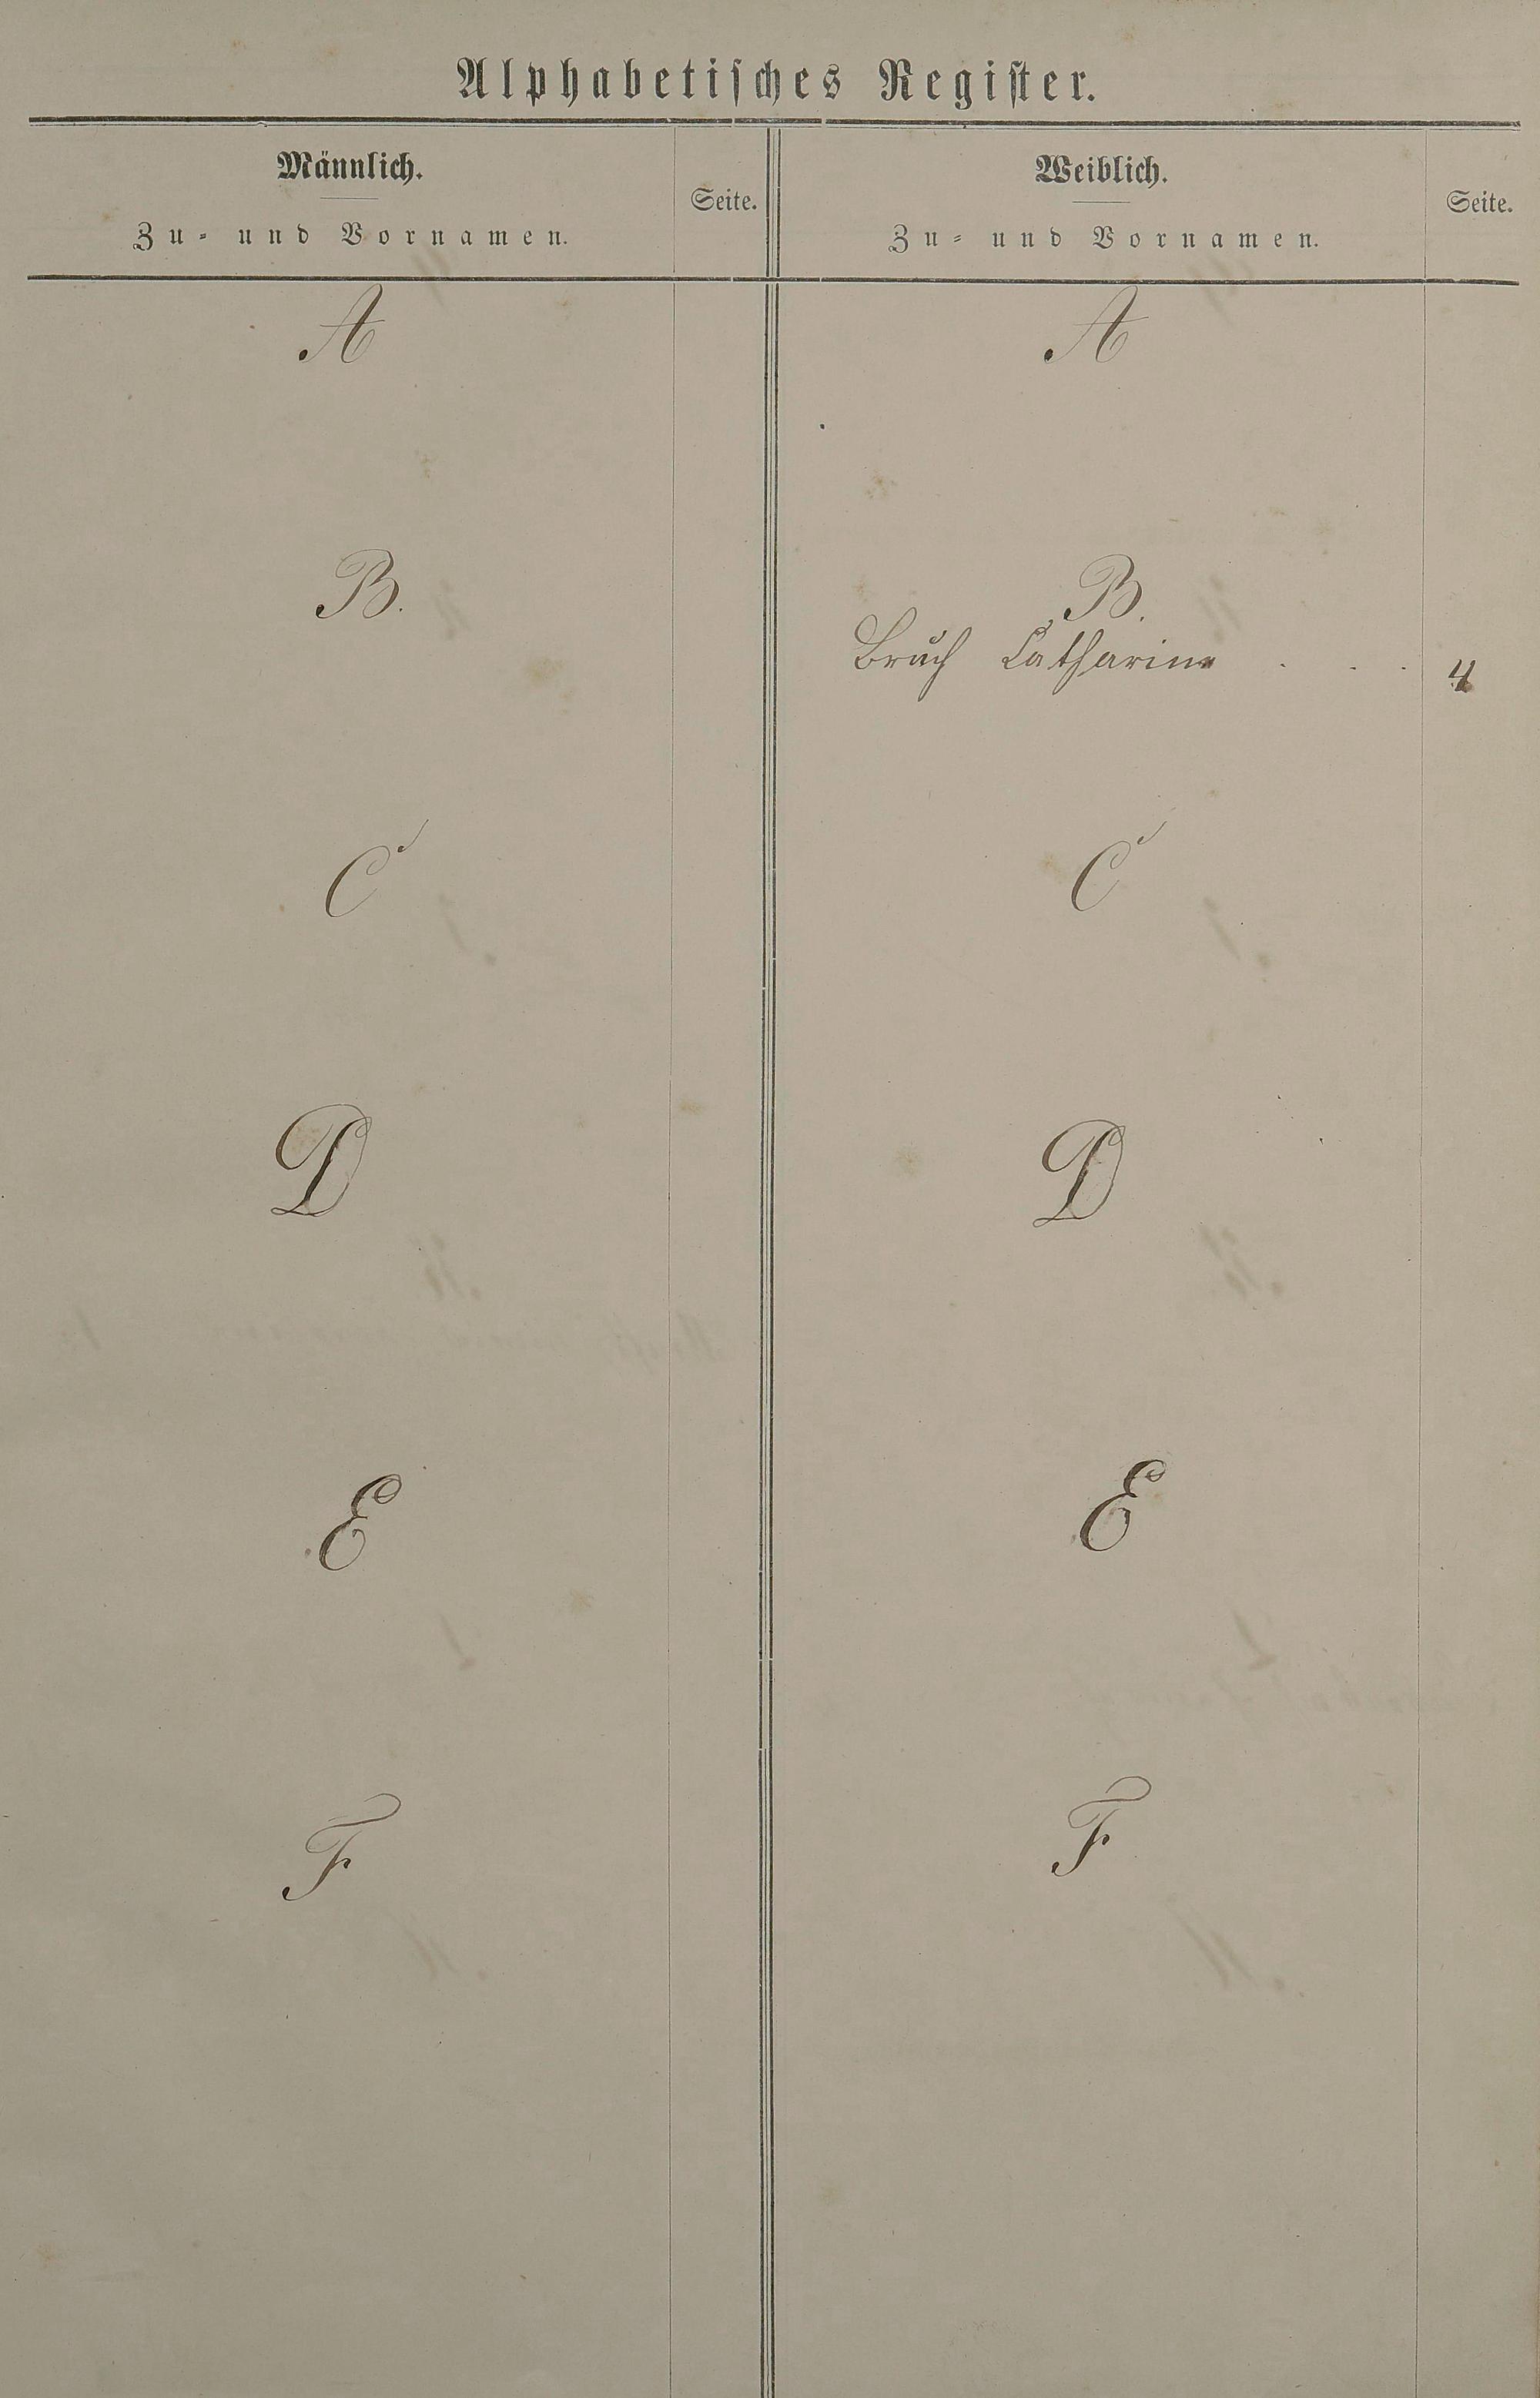 Alphabetisches Register.
Männlich.
Zu- und Vornamen.
Seite.
Weiblich.
Zu- und Vornamen.
Seite.
A
A
B.
B.
Bruch Catharina . . . 4
C
C
D
D
E
E
F
F